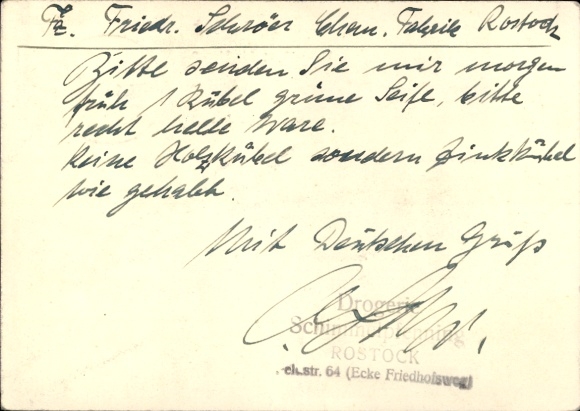 Fa. Friedr. Schröer Chem. Fabrik Rostock
Bitte senden Sie mir morgen
früh 1 Kübel grüne Seife, bitte
recht helle Ware.
Keine Holzkübel sondern Zinkkübel
wie gehabt.
Mit Deutschen Gruß
Drogerie
ROSTOCK
str. 64 (Ecke Friedhofsweg)